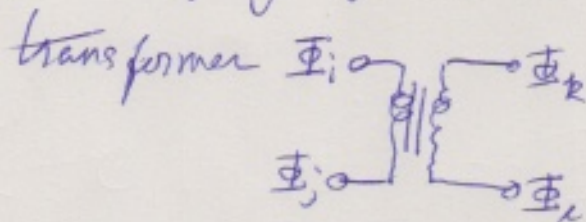 transformer Φi Φk
Φj